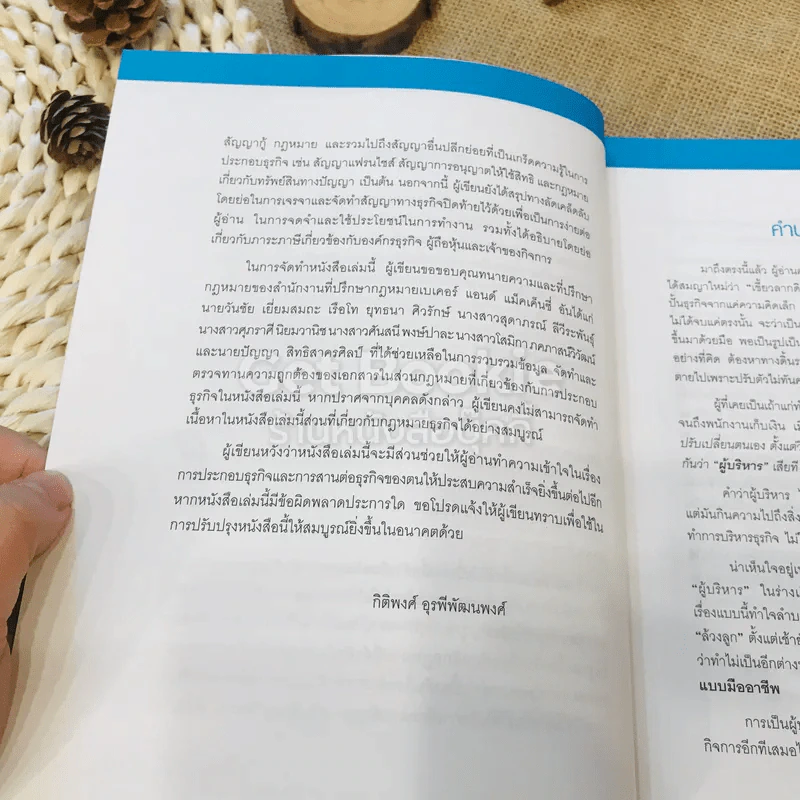 สัญญากู้ กฎหมาย และรวมไปถึงสัญญาอื่นปลีกย่อยที่เป็นเกร็ดความรู้ในการ
ประกอบธุรกิจ เช่น สัญญาแฟรนไชส์ สัญญาการอนุญาตให้ใช้สิทธิ และกฎหมาย
เกี่ยวกับทรัพย์สินทางปัญญา เป็นต้น นอกจากนี้ ผู้เขียนยังได้สรุปทางลัดเคล็ดลับ
โดยย่อในการเจรจาและจัดทำสัญญาทางธุรกิจปิดท้ายไว้ด้วยเพื่อเป็นการง่ายต่อ
ผู้อ่าน ในการจดจำและใช้ประโยชน์ในการทำงาน รวมทั้งได้อธิบายโดยย่อ
เกี่ยวกับภาระภาษีเกี่ยวข้องกับองค์กรธุรกิจ ผู้ถือหุ้นและเจ้าของกิจการ
ในการจัดทำหนังสือเล่มนี้ ผู้เขียนขอขอบคุณทนายความและที่ปรึกษา
กฎหมายของสำนักงานที่ปรึกษากฎหมายเบเคอร์ แอนด์ แม็คเค็นซี่ อันได้แก่
นายวันชัย เยี่ยมสมถะ เรือโท ยุทธนา ศิวรักษ์ นางสาวสุดาภรณ์ ลีวีระพันธุ์
นางสาวศุภราศี นิยมวานิช นางสาวศันสนี พงษ์ปาละ นางสาวโสมิกา ภคภาสน์วิวัฒน์
และนายปัญญา สิทธิสาครศิลป์ ที่ได้ช่วยเหลือในการรวบรวมข้อมูล จัดทำและ
ตรวจทานความถูกต้องของเอกสารในส่วนกฎหมายที่เกี่ยวข้องกับการประกอบ
ธุรกิจในหนังสือเล่มนี้ หากปราศจากบุคคลดังกล่าว ผู้เขียนคงไม่สามารถจัดทำ
เนื้อหาในหนังสือเล่มนี้ส่วนที่เกี่ยวกับกฎหมายธุรกิจได้อย่างสมบูรณ์
ผู้เขียนหวังว่าหนังสือเล่มนี้จะมีส่วนช่วยให้ผู้อ่านทำความเข้าใจในเรื่อง
การประกอบธุรกิจและการสานต่อธุรกิจของตนให้ประสบความสำเร็จยิ่งขึ้นต่อไปอีก
หากหนังสือเล่มนี้มีข้อผิดพลาดประการใด ขอโปรดแจ้งให้ผู้เขียนทราบเพื่อใช้ใน
การปรับปรุงหนังสือนี้ให้สมบูรณ์ยิ่งขึ้นในอนาคตด้วย
กิติพงศ์ อุรพีพัฒนพงศ์
มาถึงตรงนี้แล้ว ผู้อ่าน
ได้สมญาใหม่ว่า "เขี้ยวลาก
ปั้นธุรกิจจากแค่ความคิดเล็ก
ไม่ได้จบแค่ตรงนั้น จะว่าเป็น
ขึ้นมาด้วยมือ พอเป็นรูปเป็น
อย่างที่คิด ต้องหาทางดิ้น
ตายไปเพราะปรับตัวไม่ทัน
ผู้ที่เคยเป็นเถ้าแก่
จนถึงพนักงานเก็บเงิน
ปรับเปลี่ยนตนเอง ตั้งแต่
กันว่า "ผู้บริหาร" เสียที
คำว่าผู้บริหาร
แต่มันกินความไปถึงสิ่ง
ทำการบริหารธุรกิจ
น่าเห็นใจอยู่
"ผู้บริหาร" ในร่าง
เรื่องแบบนี้ทำใจลำบาก
"ล้วงลูก" ตั้งแต่เช้า
ว่าทำไมเป็นอีกต่าง
แบบมืออาชีพ
การเป็นผู้
กิจการอีกทีเสมอ